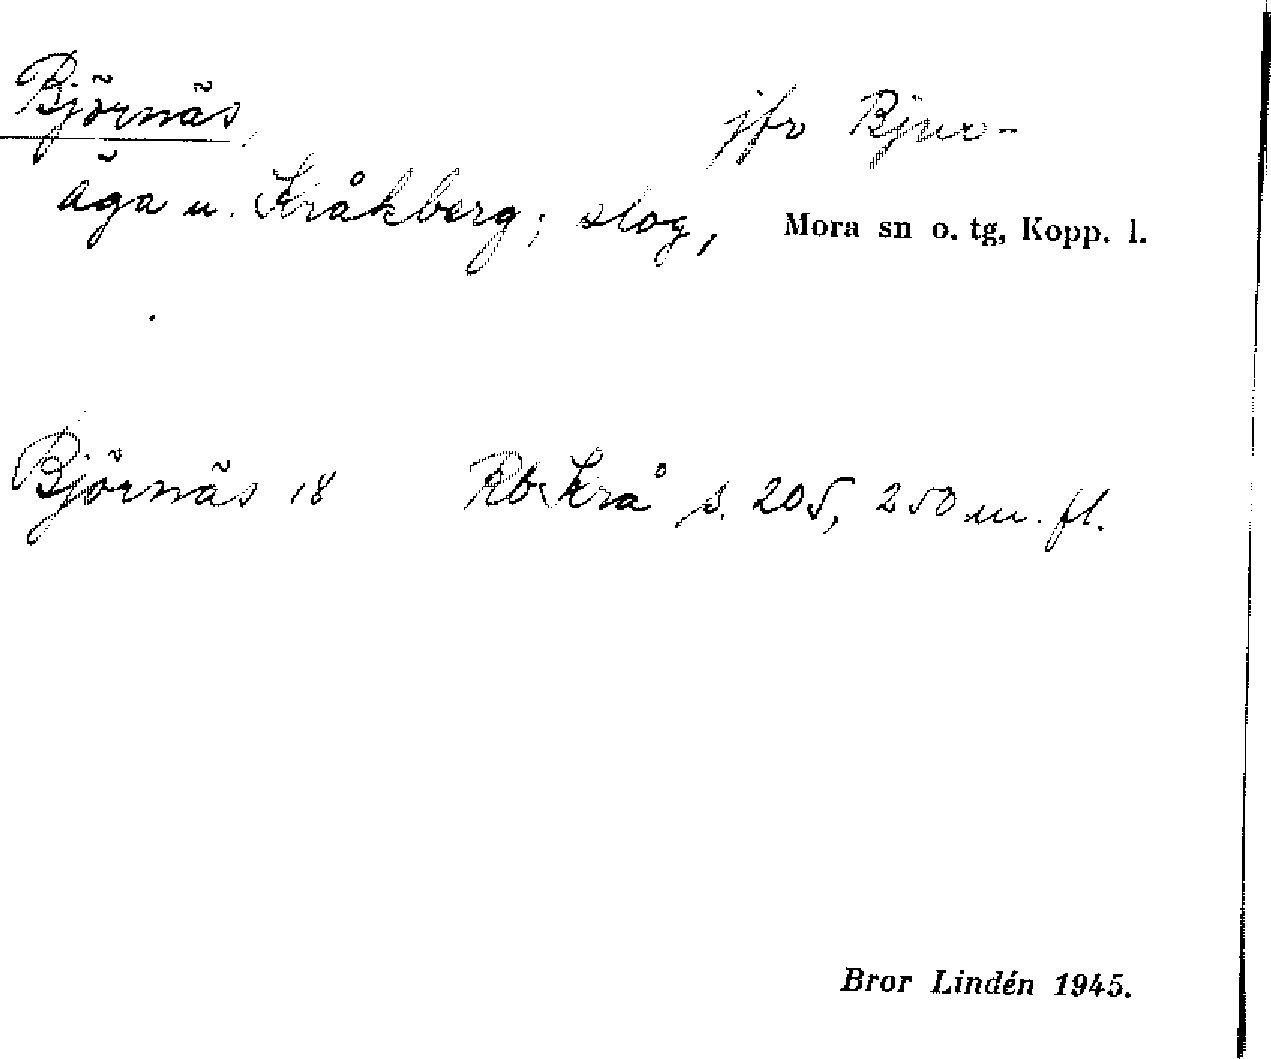 Björnäs,
jfr Bjuo-
äga u. Kråkberg; slog,
Mora sn o. tg, Kopp. l.
Björnäs 18 Rb Krå s. 205, 250 m. fl.
Bror Lindén 1945.